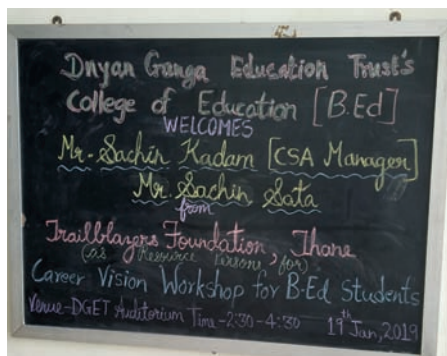 Dnyan Ganga Education Trust's
College of Education [B.Ed]
WELCOMES
Mr. Sachin Kadam [CSA Manager]
Mr. Sachin Sata
from
Trailblazers Foundation, Thane
(as Resource Persons for)
Career Vision Workshop for B-Ed Students
Venue-DGET Auditorium Time-2:30-4:30 19th Jan, 2019